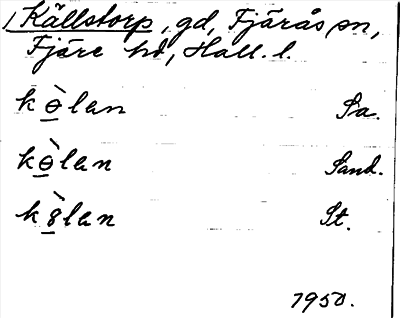 Källstorp, gd, Fjärås sn,
Fjäre hd, Hall. l.
kɵ̠̀lan Sa.
kɵ̠̀lan Sand.
k8̠̀lan St.
1950.